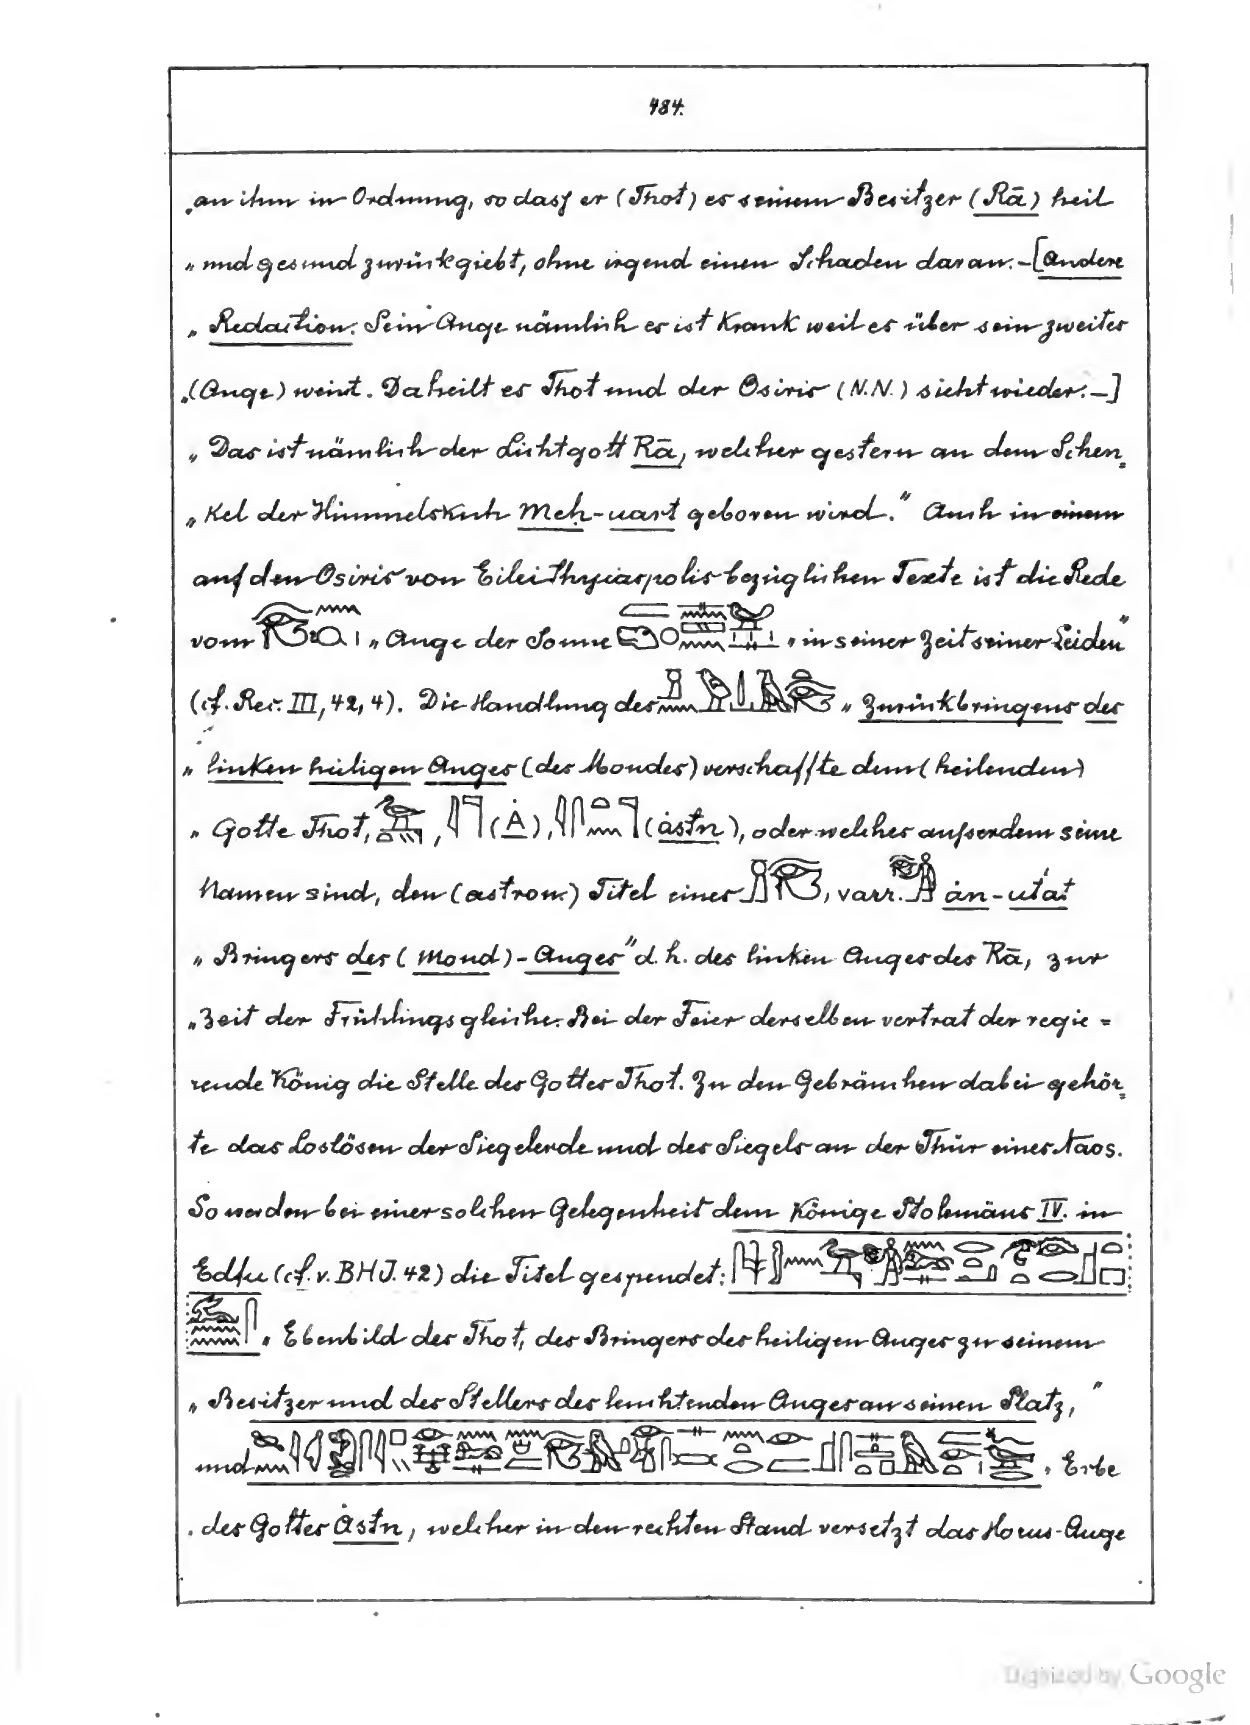 484.
„an ihm in Ordnung, so dass er (Thot) es seinem Besitzer (Rā) heil
„ und gesund zurückgiebt, ohne irgend einen Schaden daran. – [Andere
„ Redaction: Sein Auge nämlich es ist krank weil es über sein zweites
„(Auge) weint. Da heilt es Thot und der Osiris (N.N.) sieht wieder. –]
„ Das ist nämlich der Lichtgott Rā, welcher gestern an dem Schen-
„ kel der Himmelskuh Meḥ-uart geboren wird.“ Auch in einem
auf den Osiris von Eileithyiaspolis bezüglichen Texte ist die Rede
vom „ Auge der Sonne „ in seiner Zeit seiner Leiden“
(cf. Rec. III, 42, 4). Die Handlung des „ Zurückbringens des
„ linken heiligen Auges (des Mondes) verschaffte dem (heilenden)
„ Gotte Thot, , (Ȧ), (ȧstn), oder welches ausserdem seine
Namen sind, den (astron.) Titel eines , varr. ȧn-uťat
„ Bringers des (Mond)-Auges“ d. h. des linken Auges des Rā, zur
„Zeit der Frühlingsgleiche. Bei der Feier derselben vertrat der regie =
rende König die Stelle des Gottes Thot. Zu den Gebräuchen dabei gehör-
te das Loslösen der Siegelerde und des Siegels an der Thür eines Naos.
So werden bei einer solchen Gelegenheit dem Könige Ptolemäus IV. in
Edfu (cf. v. BHJ. 42) die Titel gespendet:
„ Ebenbild des Thot, des Bringers des heiligen Auges zu seinem
„ Besitzer und des Stellers des leuchtenden Auges an seinen Platz,“
und „ Erbe
„ des Gottes Ȧstn, welcher in den rechten Stand versetzt das Horus-Auge
Digitized by Google